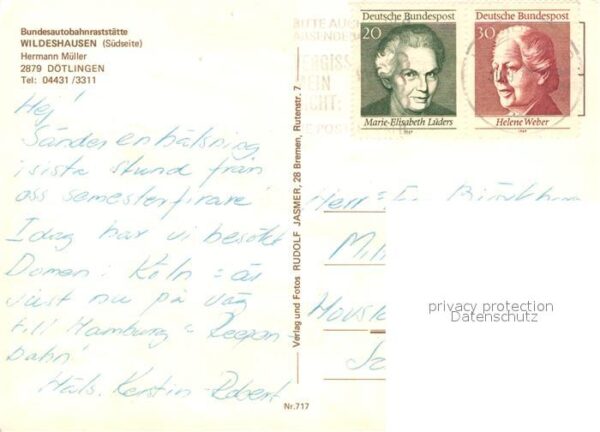 Bundesautobahnraststätte
WILDESHAUSEN (Südseite)
Hermann Müller
2879 DÖTLINGEN
Tel: 04431/3311
Hej!
Sänder en hälsning
i sista stund från
oss semesterfirare!
Idag har vi besökt
Domen i Köln - är
just nu på väg
till Hamburg - Reeper-
bahn!
Häls. Kerstin - Robert
Verlag und Fotos RUDOLF JASMER, 28 Bremen, Rutenstr. 7
Nr. 717
BITTE AUCH
ABSENDE
VERGISS
MEIN
NICHT:
POST
Deutsche Bundespost
20
Marie-Elisabeth Lüders
1969
Deutsche Bundespost
30
Helene Weber
1969
Herr
privacy protection
Datenschutz